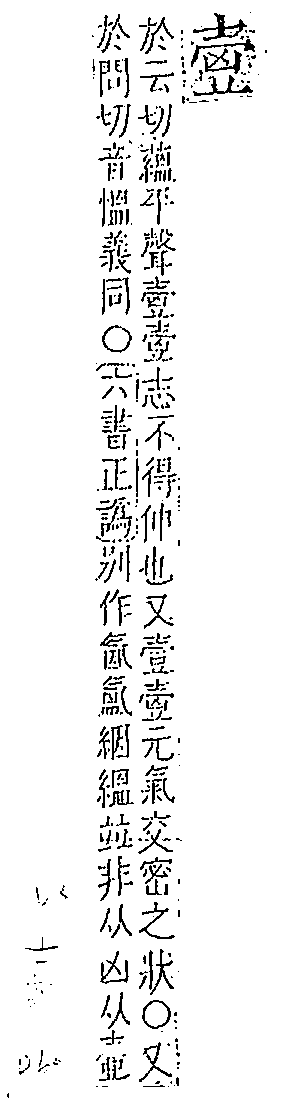 於云切蘊平聲壹志不得伸也又壹元氣交密之狀○又
於問切音慍義同○六書正譌別作氤氳絪縕並非从凶从壺